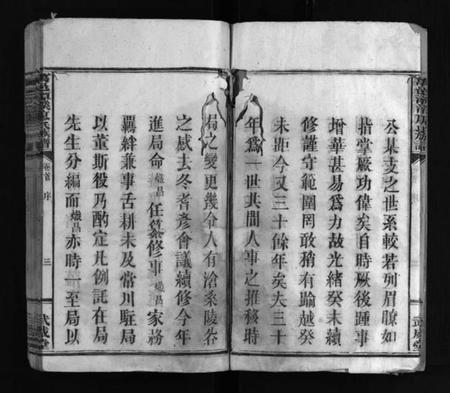 公某支之世系較若列眉瞭如
指掌厥功偉矣自時厥後踵事
增華甚易為力故光緒癸未續
修謹守範圍罔敢稍有踰越癸
未距今又三十餘年矣夫三十
年為一世其間人事之推移時
局之變更幾令人有滄桑陵谷
之感去冬耆彥會議續修今年
進局命熾昌任纂修事熾昌家務
羈絆兼事舌耕未及常川駐局
以董斯役乃酌定凡例託在局
先生分編而熾昌亦時一至局以
卷首 序
三
武威堂